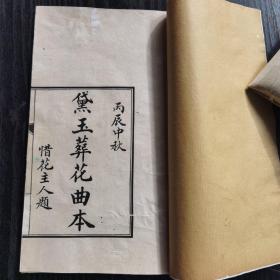 丙辰中秋
黛玉葬花曲本
惜花主人题